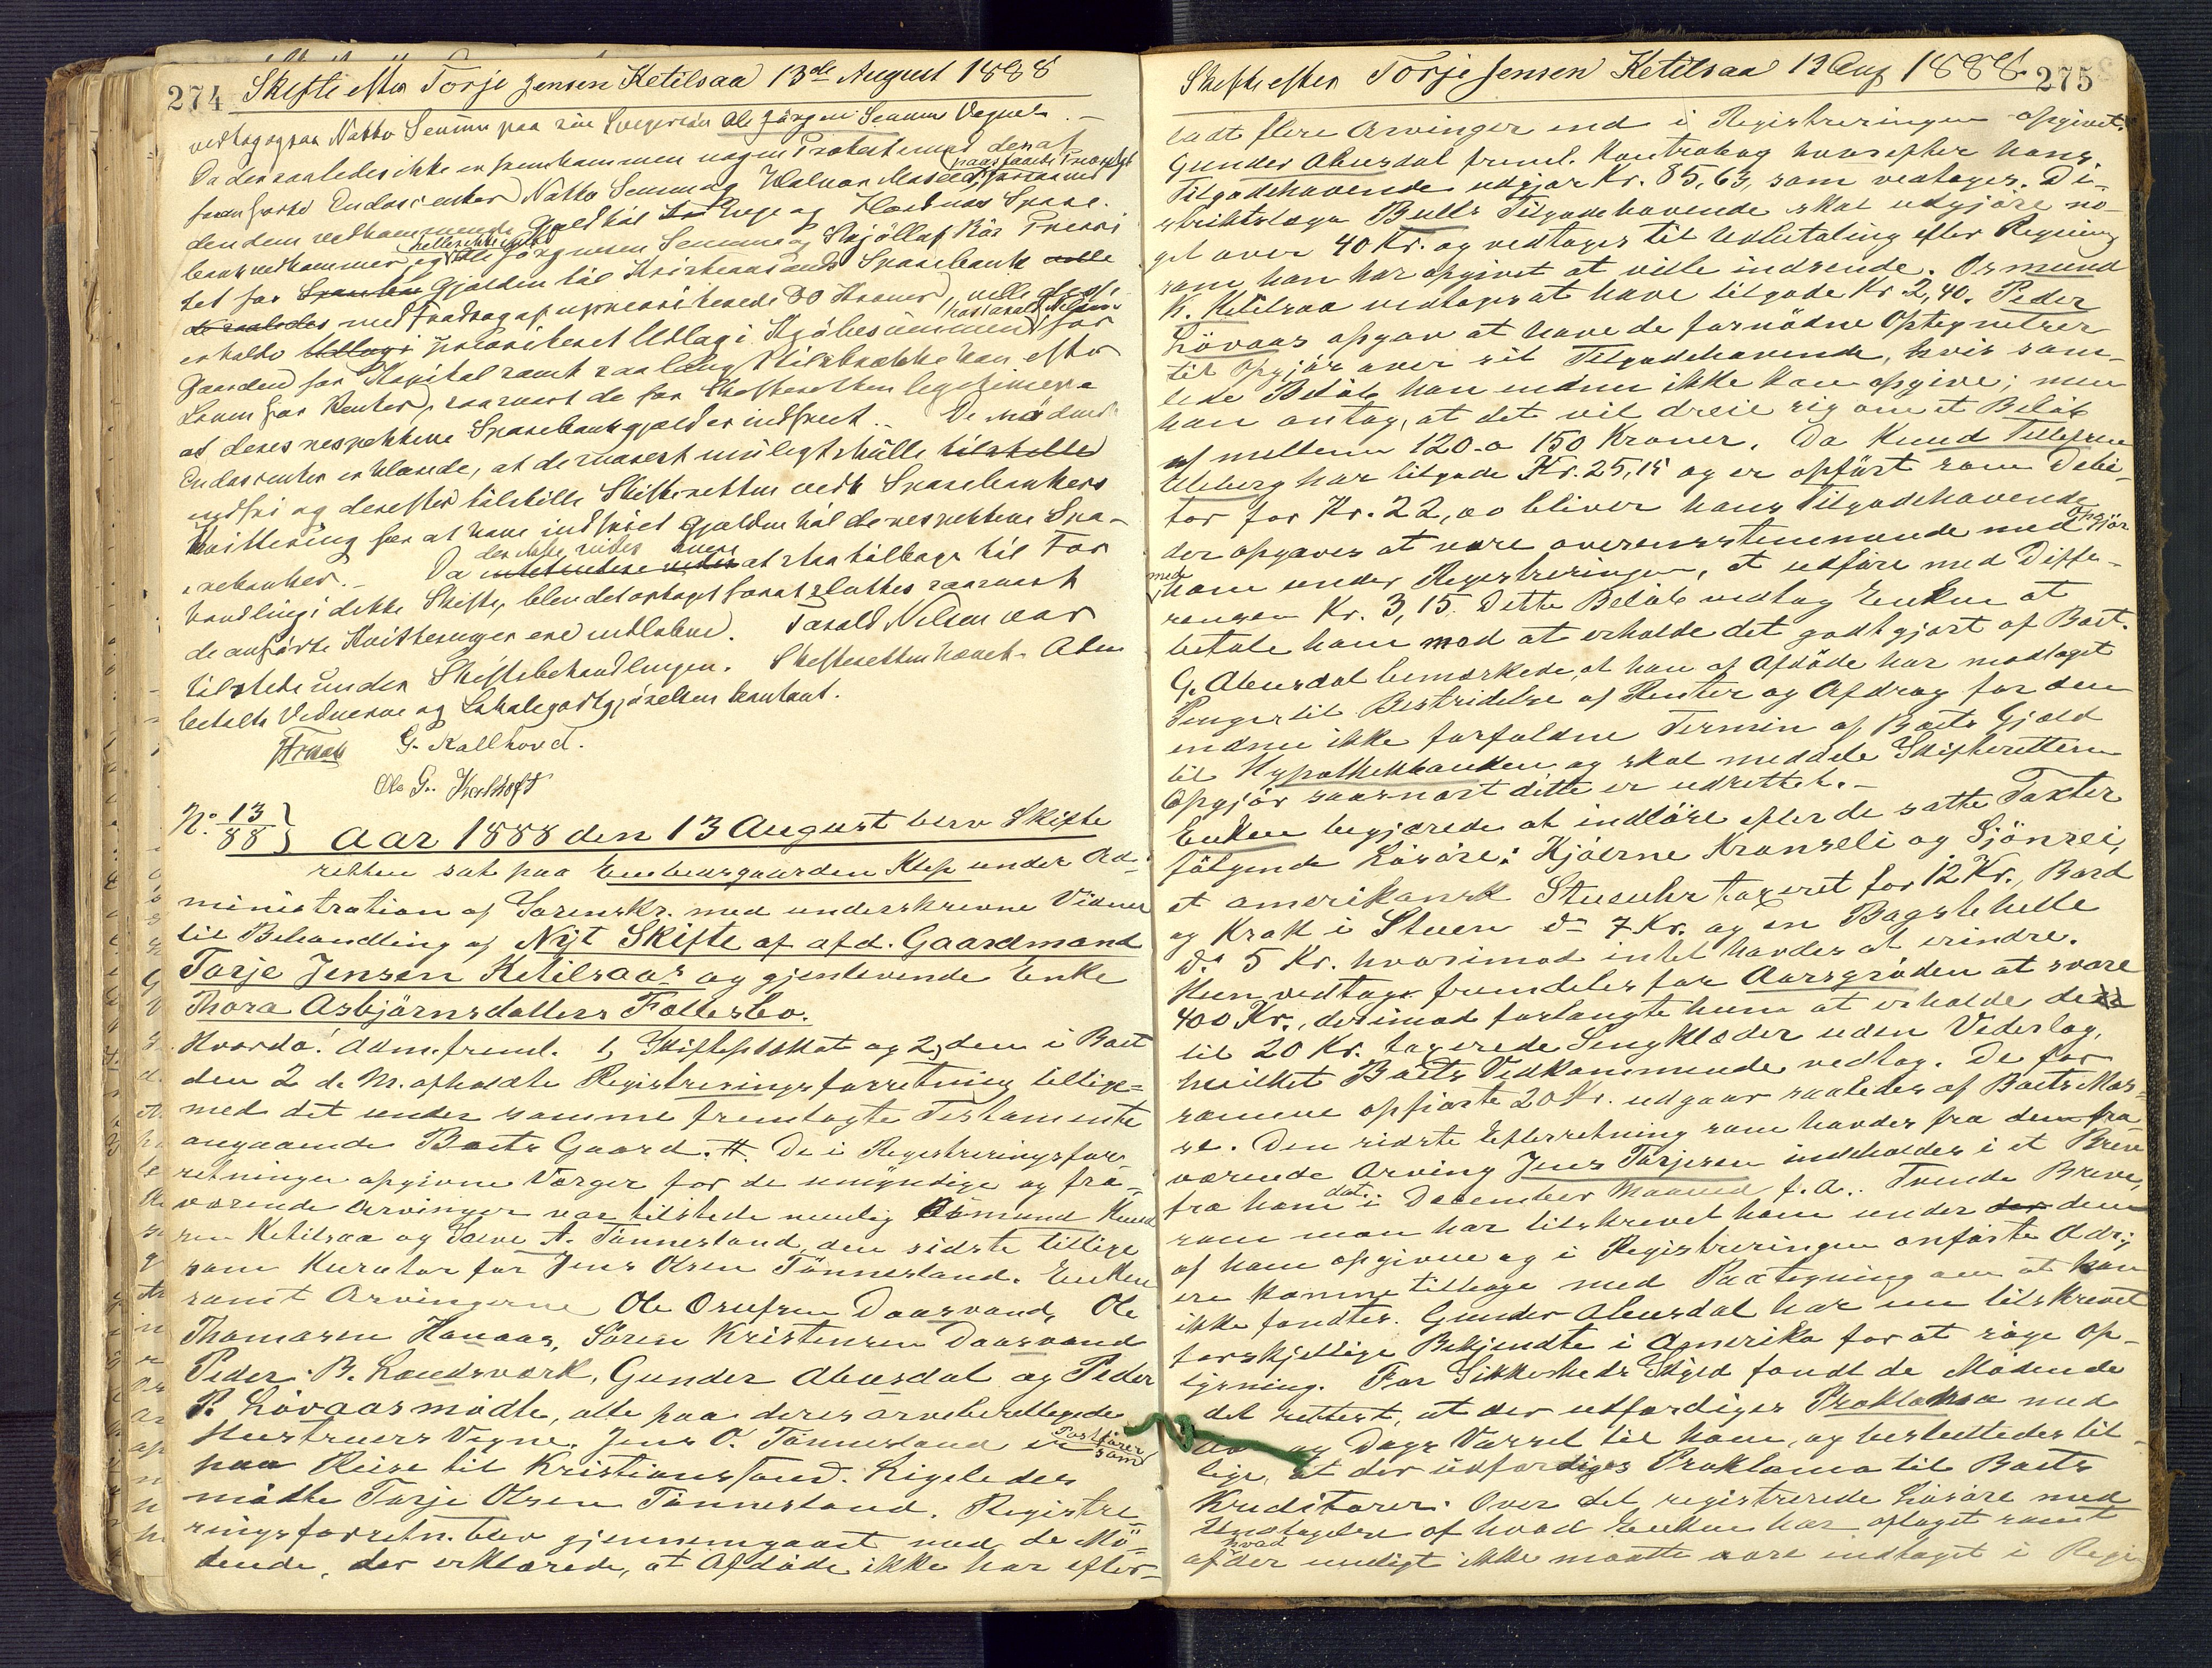 274 Skifte efter Torje Jensen Ketilsaa 13de August 1888
vedtog ogsaa Natto Senum paa sin Svigersøn Ole Jørgen Senum Vegne. —
Da der saaledes ikke er fremkommen nogen Protest mod den af
paastaaede Prioritet
foranførte Endossenter Natto Senum og Halvor
den dem vedkommende Gjæld til og Spare-
bank vedkommer, og Ole Jørgensen Senum og
heller ikke
tet for Gjælden til Kristianssands Sparebank
med Fradrag af uprioriterede 30 Kroner, ville de
erholde prioriteret Udlag i Kjøbesummen for
Gaarden for Kapital samt saa langt tilstrække kan efter
Loven for Renter, saasnart de for Skifteretten legitimere
at deres respektive Sparebankgjæld er indfriet. — De mødende
Endossenter erklærede, at de snarest muligt skulle
indfri og derefter tilstille Skifteretten vedk Sparebankers
Kvittering for at have indfriet Gjælden til de respektive Spa-
rebanker. — Da at staa tilbage til For
der ikke vides mere
handling i dette Skifte, blev det optaget for at sluttes saasnart
de anførte Kvitteringer ere indløbne. Tarald Nilsen var
tilstede under Skiftebehandlingen. Skifteretten hævet. Adm
betalte Vidnerne og Lokalegodtgjørelsen kontant.
G. Kallhovd.
Ole G.
No. 13/88 } Aar 1888 den 13 August blev Skifte
retten sat paa Enkens gaarden under Ad-
ministration af Sorenskr. med underskrevne Vidner
til Behandling af Nyt Skifte af afd. Gaardmand
Torje Jensen Ketilsaas og gjenlevende Enke
Thora Asbjørnsdatters Fællesbo.
Hvorda! Adm. freml. 1, og 2, den i Boet
den 2 d. M. afholdte Registreringsforretning tillige-
med det under samme fremlagte Testamente
angaaende Boets Gaard. #. De i Registreringsfor-
retningen opgivne Værger for de umyndige og fra-
værende Arvinger var tilstede nemlig Osmund Knud
sen Ketilsaa og A. Tønnesland, den sidste tillige
som Kurator for Jens Olsen Tønnesland. Enken
samt Arvingerne Ole Osufsen Daasvand, Ole
Thomasen Hanaas, Søren Kristensen Daasvand
Peder B. Landsværk, Gunder Abusdal og Peder
P. Løvaas mødte, alle paa deres arveberettigede
Hustruers Vegne. Jens O. Tønnesland er
Postfører
som
paa Reise til Kristianssand. Ligeledes
mødte Torje Olsen Tønnesland. Registre-
ringsforretn. blev gjennemgaaet med de Mø-
dende, der erklærede, at Afdøde ikke har efter-
Skifte efter Torje Jensen Ketilsaa 13 Aug 1888. 275
ladt flere Arvinger end i Registreringen opgivet.
Gunder Abusdal freml. Kontrabog hvorefter hans
Tilgodehavende udgjør Kr. 85,63, som vedtages. Di-
striktslæge Bulls Tilgodehavende skal udgjøre no-
get over 40 Kr. og vedtages til Udbetaling efter Regning
som han har opgivet at ville indsende. Osmund
K. Ketilsaa vedtages at have tilgode Kr 2,40. Peder
Løvaas opgav at have de fornødne Optegnelser
til Opgjør over sit Tilgodehavende, hvis sam-
lede Beløb han endnu ikke kan opgive; men
han antog, at det vil dreie sig om et Beløb
af mellem 120 a 150 Kroner. Da Knud Tellefsen
Ubberg har tilgode Kr. 25,15 og er opført som Debi-
tor for Kr. 22,00 bliver hans Tilgodehavende,
der opgaves at være overensstemmende med Opgjør
med
ham under Registreringen, at udføre med Diffe-
rensen Kr. 3,15. Dette Beløb vedtog Enken at
betale ham mod at erholde det godtgjort af Boet.
G. Abusdal bemærkede, at han af Afdøde har modtaget
Penger til Bestridelse af Renter og Afdrag for den
endnu ikke forfaldne Termin af Boets Gjæld
til Hypothekbanken og skal meddele Skifteretten
Opgjør saasnart dette er udrettet. —
Enken begjærede at indløse efter de satte Taxter
følgende Løsøre: Kjøerne Kranseli og Sjønrei,
et amerikansk Stueuhr taxeret for 12 Kr., Bord
og Krak i Stuen do 7 Kr. og en Bagstehelle
do 5 Kr. hvorimod intet havdes at erindre.
Hun vedtog fremdeles for Aarsgrøden at svare
400 Kr., derimod forlangte hun at erholde de
til 20 Kr. taxerede Sengklæder uden Vederlag,
hvilket Boets Vedkommende vedtog. De for
samme opførte 20 Kr. udgaar saaledes af Boets Mas-
se. Den sidste Efterretning som havdes fra den fra-
værende Arving Jens Torjesen indeholdes i et Brev
fra ham dat. i December Maaned f. A. Tvende Breve,
som man har tilskrevet ham under den
af ham opgivne og i Registreringen anførte Adr.,
ere komne tilbage med Paategning om at han
ikke fandtes. Gunder Abusdal har nu tilskrevet
forskjellige Bekjendte i Amerika for at søge Op-
lysning. For Sikkerheds Skyld fandt de Mødende
det rettest, at der udfærdiges Proklama med
Aar og Dags Varsel til ham, og besluttedes til-
lige, at der udfærdiges Proklama til Boets
Kreditorer. Over det registrerede Løsøre med
Undtagelse af hvad Enken har optaget samt
hvad
af der muligt ikke maatte være indtaget i Regi